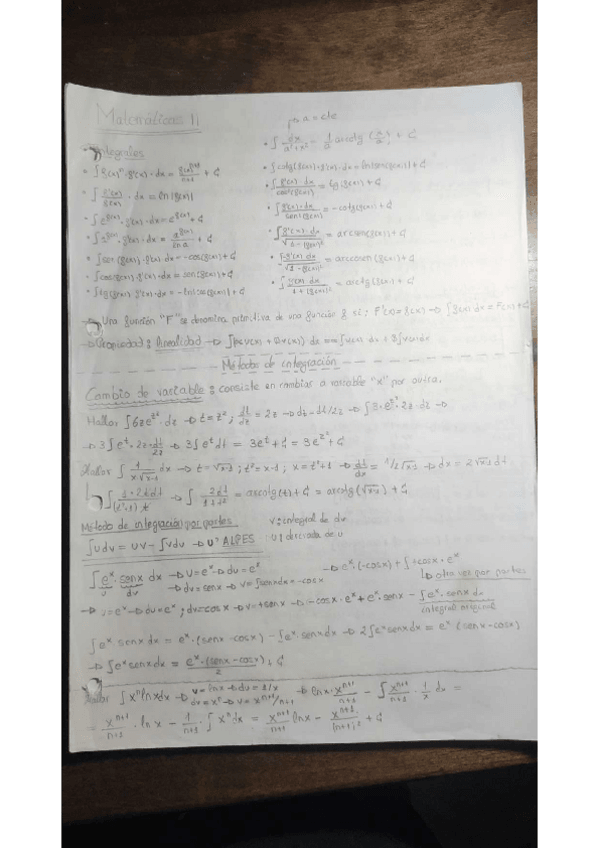 Matemáticas II
→ a = cte
• Integrales
• ∫ f(x)ⁿ · f'(x) · dx = f(x)ⁿ⁺¹/n+1 + C
• ∫ f'(x)/f(x) · dx = ln|f(x)|
• ∫ e^f(x) · f'(x) · dx = e^f(x) + C
• ∫ a^f(x) · f'(x) · dx = a^f(x)/ln a + C
• ∫ sen(f(x)) · f'(x) dx = -cos(f(x)) + C
• ∫ cos(f(x)) · f'(x) · dx = sen(f(x)) + C
• ∫ tg(f(x)) · f'(x) · dx = -ln|cos f(x)| + C
• ∫ dx/a²+x² = 1/a arctg (x/a) + C
• ∫ cotg(f(x)) · f'(x) · dx = ln|sen f(x)| + C
• ∫ f'(x) · dx/cos²(f(x)) = tg(f(x)) + C
• ∫ f'(x) · dx/sen²(f(x)) = -cotg(f(x)) + C
• ∫ f'(x) · dx/√1-(f(x))² = arcsen(f(x)) + C
• ∫ -f'(x) · dx/√1-(f(x))² = arccos (f(x)) + C
• ∫ f'(x) dx/1+(f(x))² = arctg (f(x)) + C
→ Una función "F" se denomina primitiva de una función f si; F'(x) = f(x) → ∫ f(x) dx = F(x) + C
→ Propiedad: linealidad →
Métodos de integración
Cambio de variable: consiste en cambiar la variable "x" por otra.
Hallar ∫ 6z e^z² · dz → t = z²; dt/dz = 2z → dz = dt/2z → ∫ 3 · e^z² · 2z · dz →
→ 3 ∫ e^t · 2z · dt/2z → 3 ∫ e^t dt = 3e^t + C = 3e^z² + C
Hallar ∫ 1/x√x-1 dx → t = √x-1; t² = x-1; x = t²+1 → dt/dx = 1/2√x-1 → dx = 2√x-1 dt
∫ 1 · 2t dt/(t²+1) t → ∫ 2dt/1+t² = arctg(t) + C = arctg(√x-1) + C
Método de integración por partes
v: integral de dv
u: derivada de u
∫ u dv = uv - ∫ v du → U° ALPES
∫ eˣ · senx dx → u = eˣ → du = eˣ
u dv
→ dv = senx → v = ∫ senx dx = -cosx
→ eˣ · (-cosx) + ∫ +cosx · eˣ
↳ otra vez por partes
→ u = eˣ → du = eˣ; dv = cosx → v = +senx → -cosx · eˣ + eˣ · senx - ∫ eˣ · senx dx
integral original
∫ eˣ senx dx = eˣ · (senx - cosx) - ∫ eˣ · senx dx → 2 ∫ eˣ senx dx = eˣ (senx - cosx)
→ ∫ eˣ senx dx = eˣ · (senx - cosx)/2 + C
Hallar ∫ xⁿ ln x dx → u = ln x → du = 1/x
dv = xⁿ → v = xⁿ⁺¹/n+1
→ ln x · xⁿ⁺¹/n+1 - ∫ xⁿ⁺¹/n+1 · 1/x dx =
= xⁿ⁺¹/n+1 · ln x - 1/n+1 · ∫ xⁿ dx = xⁿ⁺¹/n+1 ln x - xⁿ⁺¹/(n+1)² + C